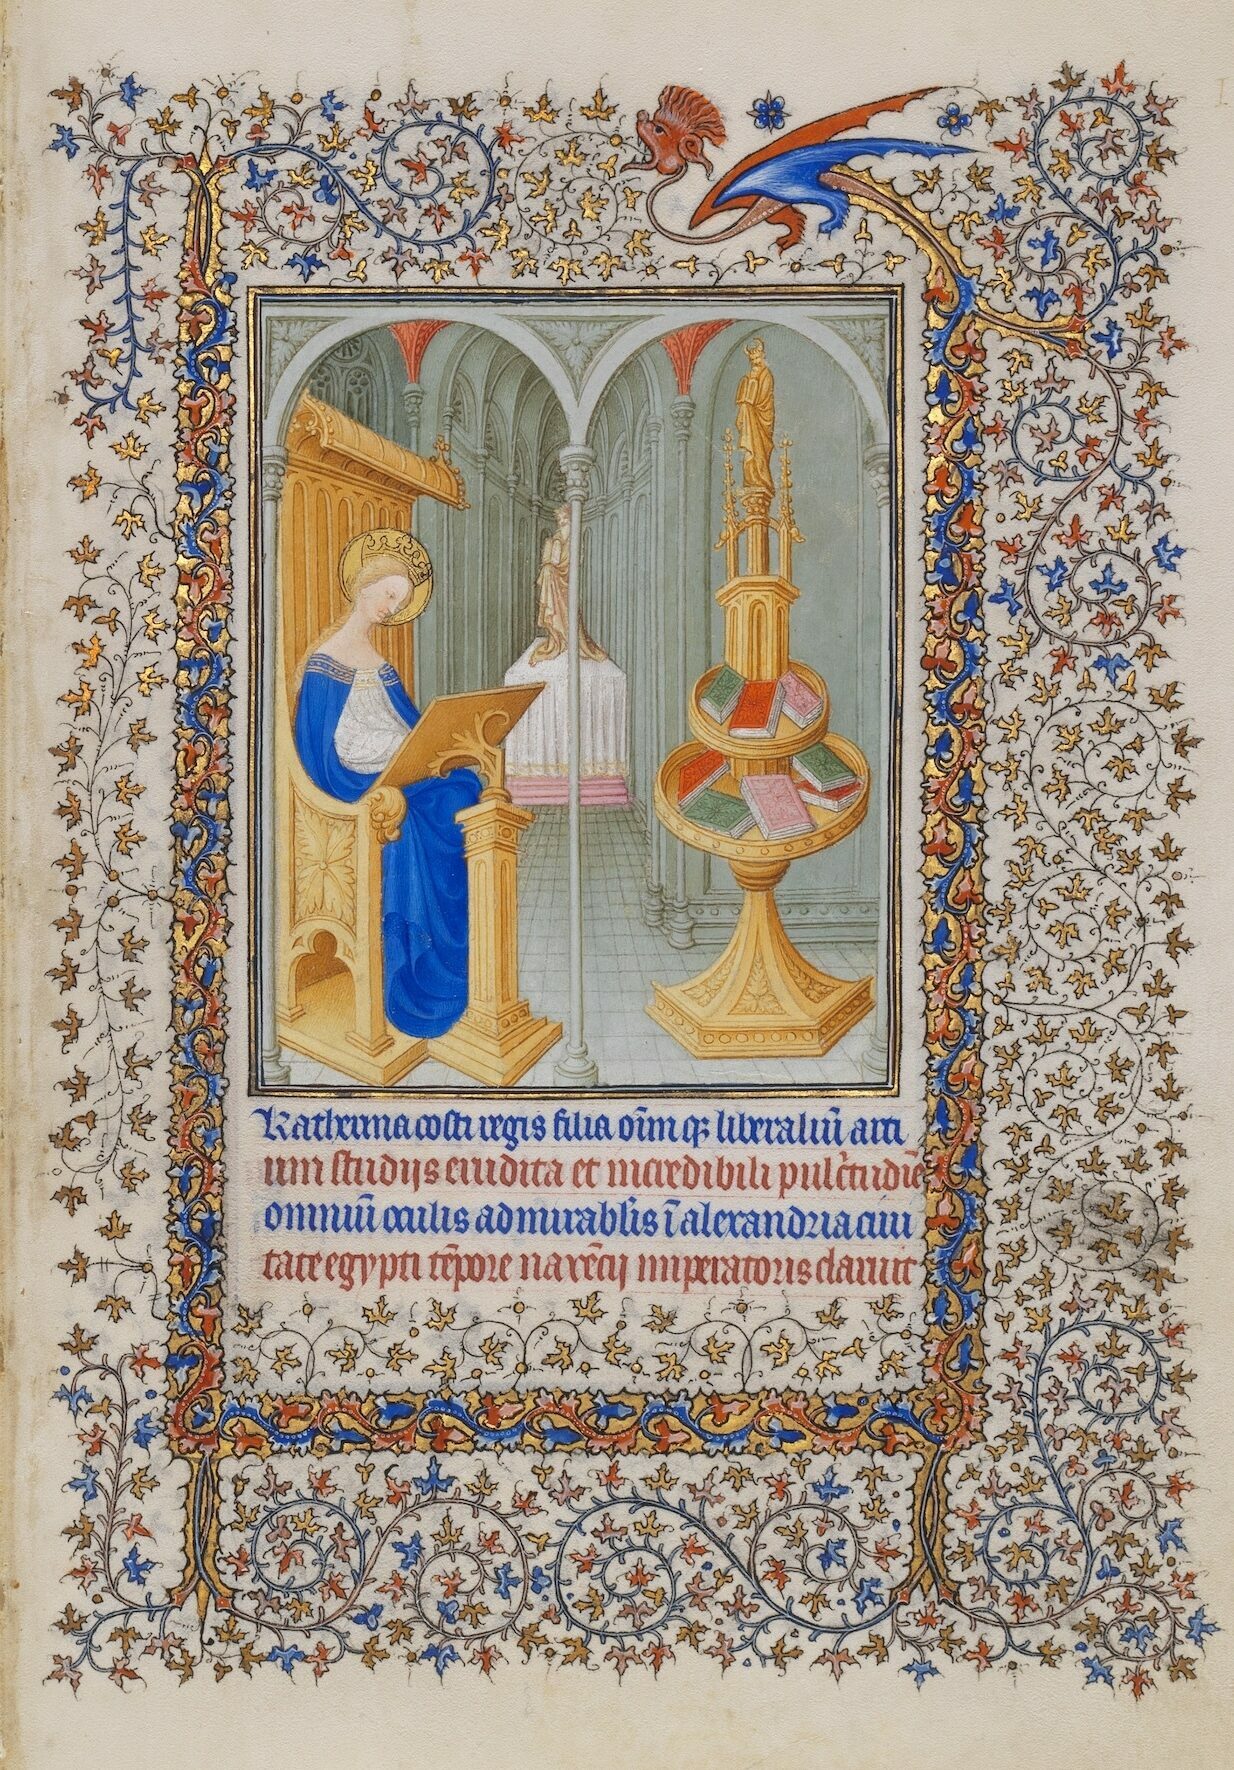 Katherina costi regis filia oi̅m q3 liberaliu̅ arti
um studijs erudita et incredibili pulc̅tudi̅e
omniu̅ oculis admirabilis i̅ alexandria ciui
tate egypti te̅pore maxe̅cij imperatoris claruit